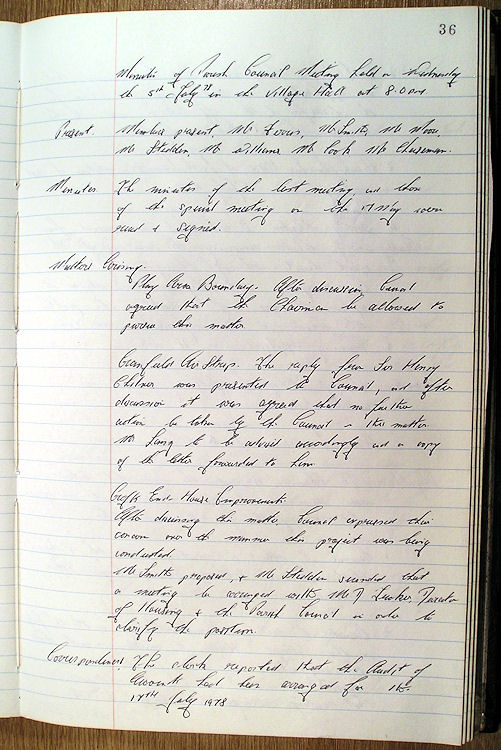 36
Minutes of Parish Council Meeting held on Wednesday
the 5th July 78 in the Village Hall at 8.0 pm
Present Members present, Mr Mr Smith, Mr Moore,
Mr Stedden, Mr Williams Mr Cook Mr Cheeseman.
Minutes The minutes of the last meeting and those
of the special meeting on the 17 May were
read & signed.
Matters Arising.
Play Area Boundary. After discussing Council
agreed that the Chairman be allowed to
pursue this matter
Air Strip. The reply from Sir Henry
was presented to Council, and after
discussion it was agreed that no further
action be taken by the Council in this matter.
Mr Laing to be advised accordingly and a copy
of the letter forwarded to him
Ends House Improvements
After discussing this matter, Council expressed their
concern over the manner this project was being
conducted.
Mr Smith proposed, & Mr Stedden seconded that
a meeting be arranged with Mr Director
of Housing & the Parish Council in order to
clarify the position.
Correspondence. The clerk reported that the Audit of
Accounts had been arranged for the
17th July 1978